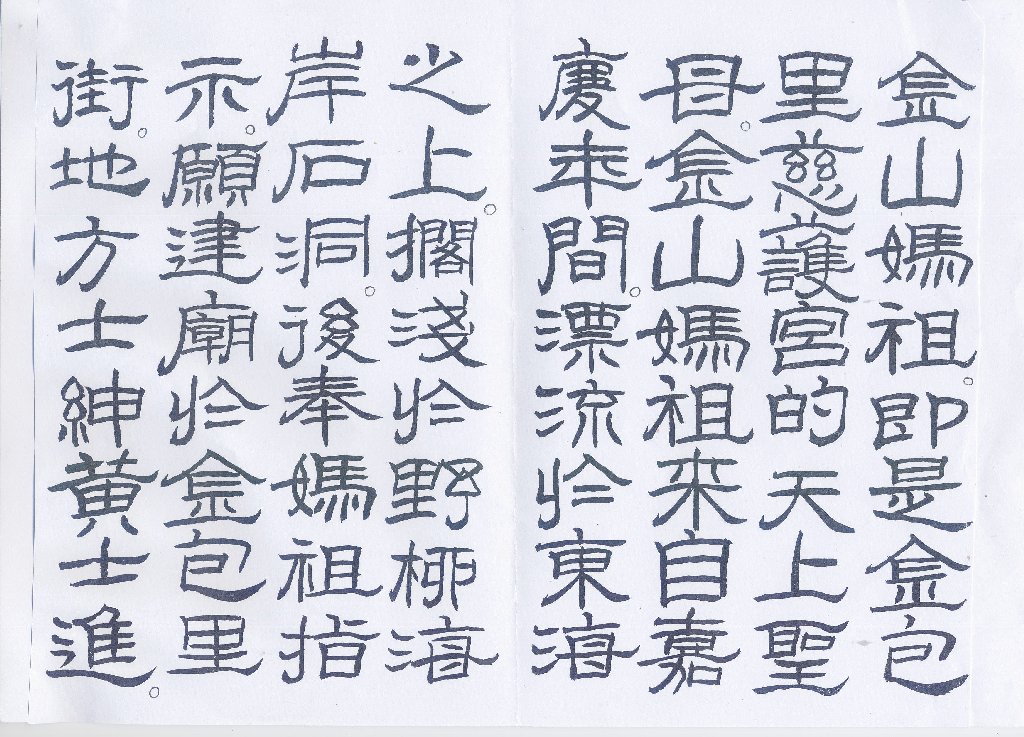 金山媽祖。即是金包
里慈護宮的天上聖
母。金山媽祖来自嘉
慶年間。漂流於東海
之上。擱淺於野柳海
岸石洞。後奉媽祖指
示。願建廟於金包里
街。地方士紳黃士進。